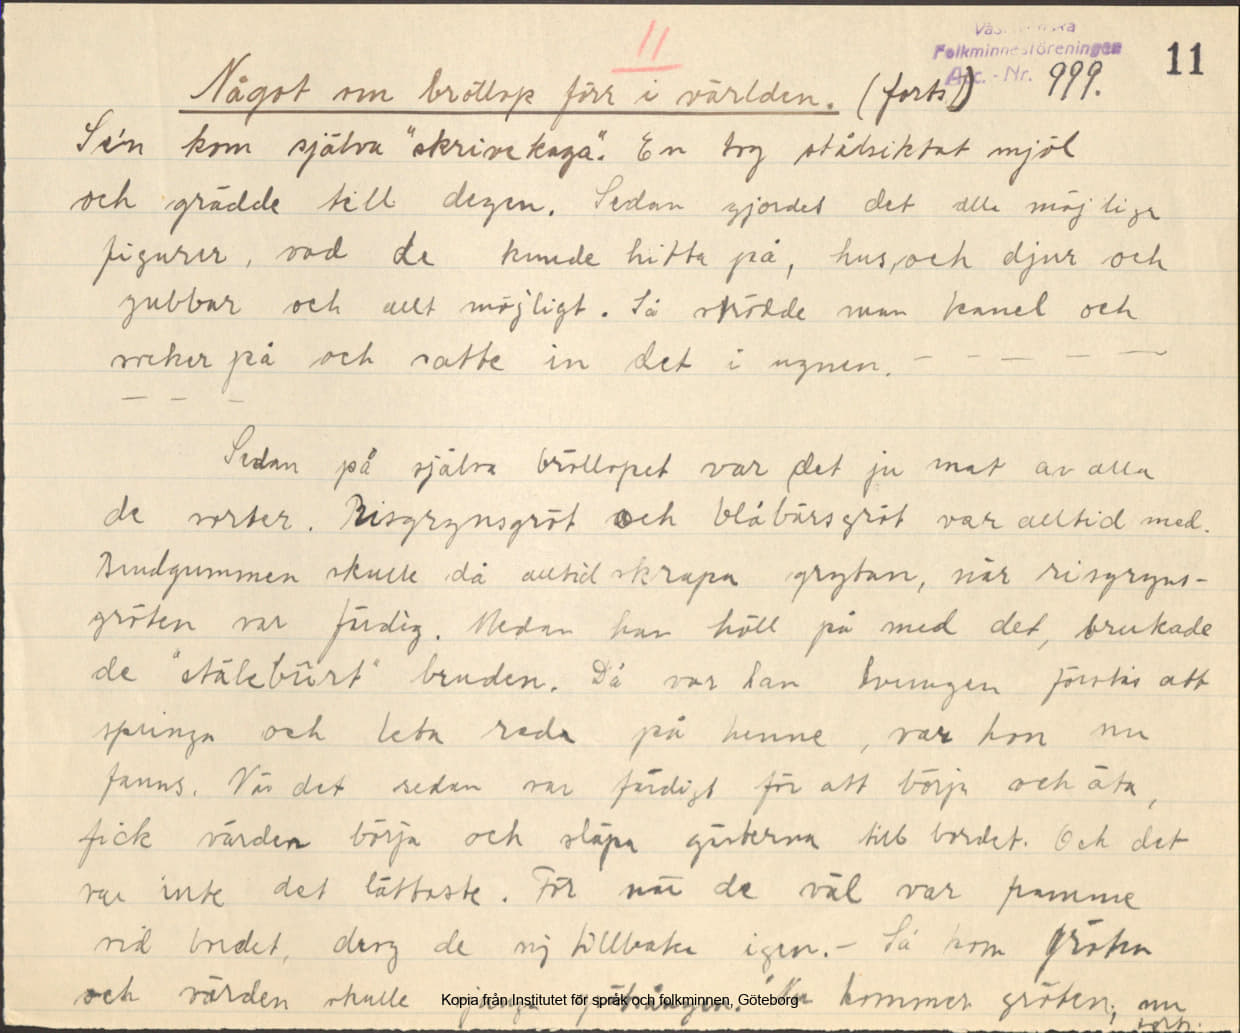 11
Folkminnesföreningen 11
Acc. - Nr. 999.
Något om bröllop förr i världen. (forts)
Se'n kom själva "skrivekaga". En tog stålsiktat mjöl
och grädde till degen. Sedan gjordes det alla möjliga
figurer, vad de kunde hitta på, hus, och djur och
gubbar och allt möjligt. Så strödde man kanel och
socker på och satte in det i ugnen. - - - - -
- - -
Sedan på själva bröllopet var det ju mat av alla
de sorter. Risgrynsgröt och blåbärsgröt var alltid med.
Brudgummen skulle då alltid skrapa grytan, när risgryns-
gröten var färdig. Medan han höll på med det, brukade
de "stälebûrt" bruden. Då var han tvungen förstås att
springa och leta reda på henne, var hon nu
fanns. När det sedan var färdigt för att börja och äta,
fick värden börja och släpa gästerna till bordet. Och det
var inte det lättaste. För när de väl var framme
vid bordet, drog de sig tillbaka igen. - Så kom gröten
och värden skulle "Nu kommer gröten, nu
forts.
Kopia från Institutet för språk och folkminnen, Göteborg